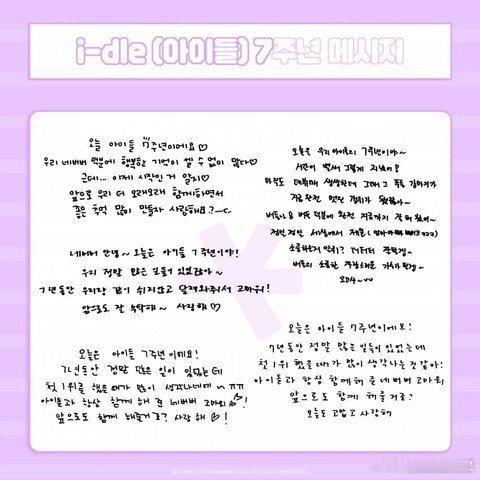 i-dle (아이들) 7주년 메시지
오늘 아이들 7주년이에요♡
우리 네버버 덕분에 행복한 기억이 셀 수 없이 많다♡
근데... 이제 시작인 거 알지
앞으로 우리 더 오래오래 함께하면서
좋은 추억 많이 만들자 사랑해
네버버 안녕~ 오늘은 아이들 7주년이야!
우리 정말 많은 일들이 있었잖아~
7년동안 우리랑 같이 쉬지않고 달려와줘서 고마워!
앞으로도 잘 부탁해~ 사랑해♡
오늘은 아이들 7주년이에요!
7년동안 정말 많은 일이 있었는데
첫 1위를 했을때가 많이 생각나네에 ~ ㅠㅠ
아이들과 항상 함께 해 준 네버버 고마워!
앞으로도 함께 해줄거죠? 사랑해!
오늘은 우리 아이들의 7주년이야~
시간이 벌써 그렇게 지났어?
아직도 데뷔때 생생한데 그때 그
지금 완전 멋진
버들아 덕분에 완전 지금까지 잘
세상에서 제일
소중하다는 알지? 더더더
버들의 소중한
오늘은 아이들 7주년이에요!
7년동안 정말 많은 일들이 있었는데
첫 1위 했을때가 많이 생각나는 것 같아!
아이들과 항상 함께해 준 네버버 고마워
앞으로도 함께 해줄거죠?
오늘도 고맙고 사랑해
© CUBE ENTERTAINMENT INC. ALL RIGHTS RESERVED